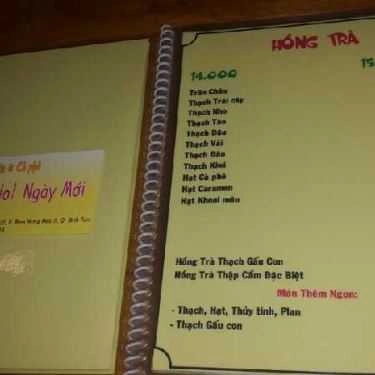 Cà phê
Ngày Mới
HỒNG TRÀ
14.000
15
Trân Châu
Thạch Trái cây
Thạch Nho
Thạch Táo
Thạch Dâu
Thạch Vải
Thạch Đào
Thạch Kiwi
Hạt Cà phê
Hạt Caramen
Hạt Khoai môn
Hồng Trà Thạch Gấu Con
Hồng Trà Thập Cẩm Đặc Biệt
Món Thêm Ngon:
- Thạch, Hạt, Thủy tinh, Plan
- Thạch Gấu con